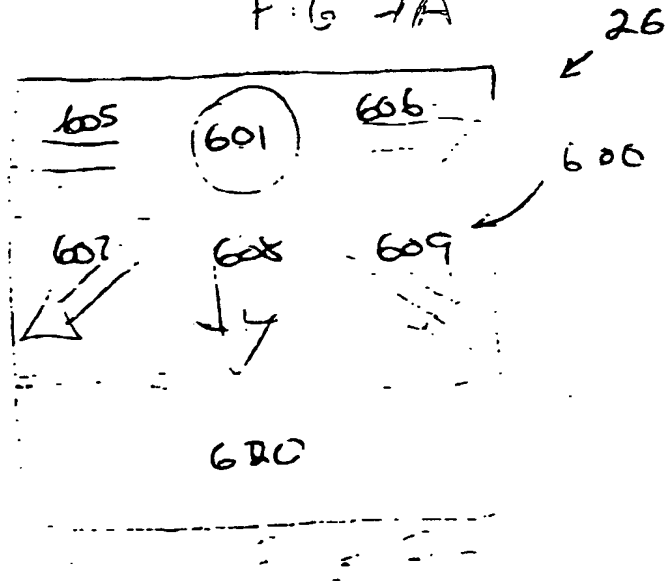 FIG 7A
26
605 601 606
600
607 608 609
620